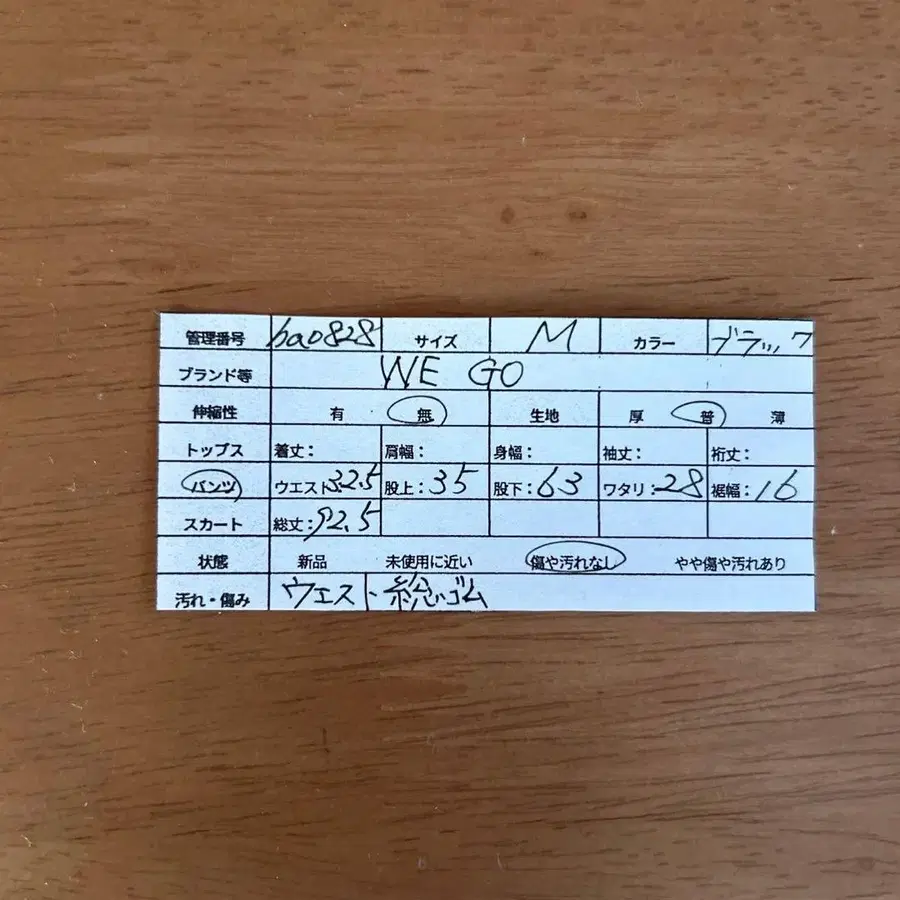 管理番号 ba0828 サイズ M カラー ブラック
ブランド等 WE GO
伸縮性 有 無 生地 厚 普 薄
トップス 着丈: 肩幅: 身幅: 袖丈: 裄丈:
パンツ ウエスト:32.5 股上:35 股下:63 ワタリ:28 裾幅:16
スカート 総丈:92.5
状態 新品 未使用に近い 傷や汚れなし やや傷や汚れあり
汚れ・傷み ウエスト総ゴム